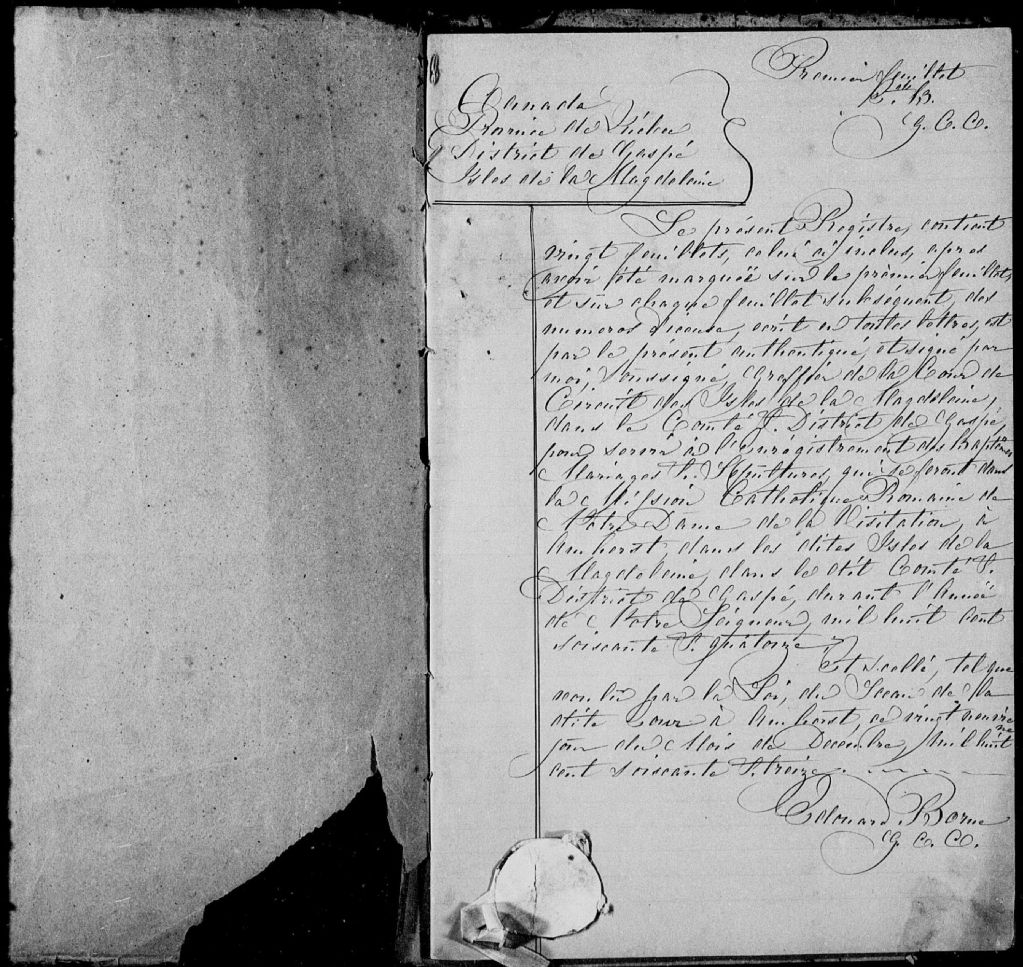 Premier feuillet
E. B.
G. C. C.
Canada
Province de Québec
District de Gaspé
Isles de la Magdeleine
Le présent Registre, contient
vingt feuillets, celui ci inclus, apres
avoir été marqueé sur le premier feuillet,
et sur chaque feuillet subséquent, des
numeros d'iceux, écrit en toutes lettres, est
par le présent authentiqué, et signé par
moi, Soussigné, Greffier de la Cour de
Circuit des Isles de la Magdeleine,
dans le Comté & District de Gaspé,
pour servir à l'enrégistrement des Baptêmes
Mariages & Sépultures, qui se feront dans
la Mission Catholique Romaine de
Notre Dame de la Visitation, à
Amherst, dans les dites Isles de la
Magdeleine, dans le dit Comté &
District de Gaspé, durant l'Année
de Notre Seigneur, mil huit cent
soixante & quatorze
Et scellé, tel que
voulu par la Loi, du Sceau de la
dite Cour à Amherst, ce vingt neuvième
jour du Mois de Decembre, Mil huit
cent soixante & treize.
Edouard Borne
G. C. C.